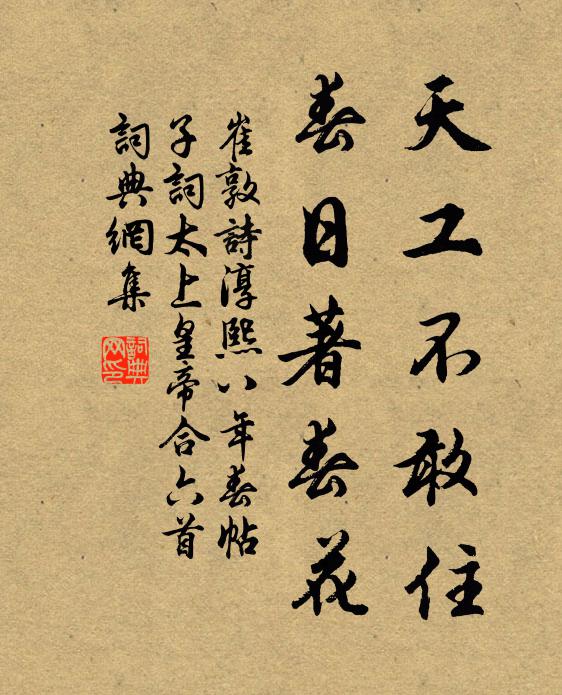 天工不敢住
春日著春花
崔敦詩淳熙八年春帖
子詞太上皇帝合六首
詞典網集
詞典网印